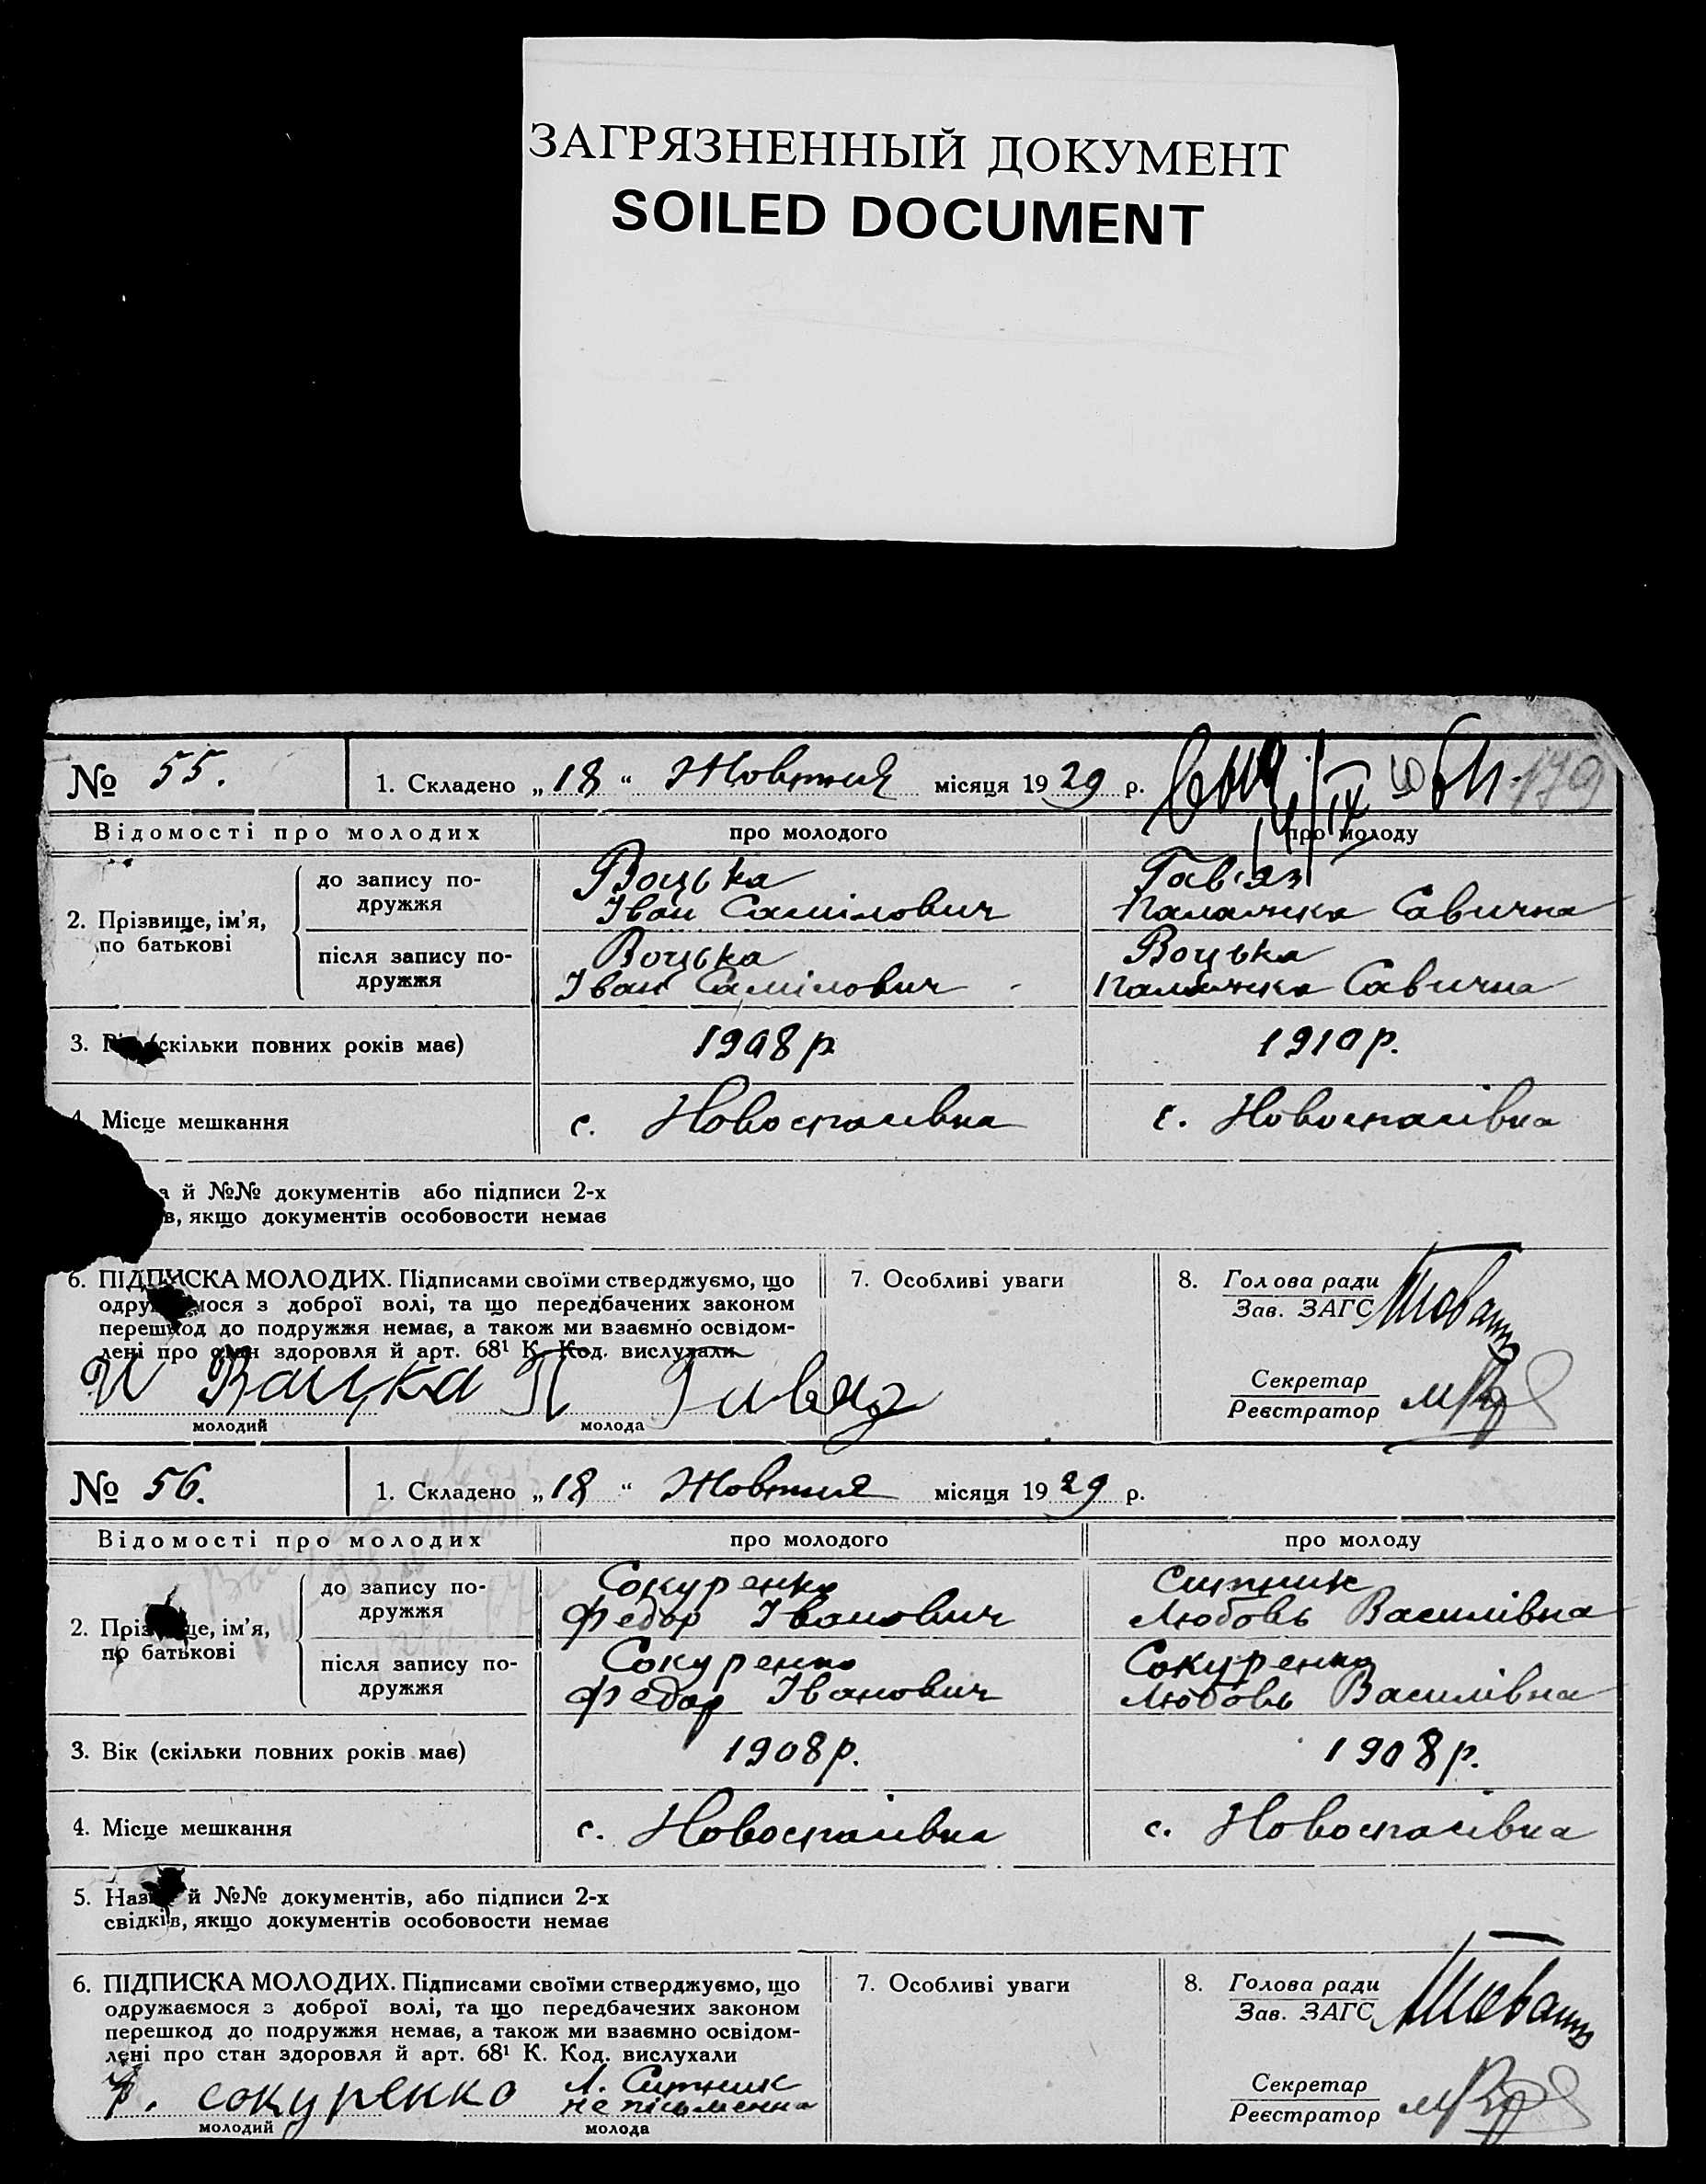 ЗАГРЯЗНЕННЫЙ ДОКУМЕНТ
SOILED DOCUMENT
№ 55.
1. Складено „18“ Жовтня місяця 1929 р.
179
Відомості про молодих
про молодого
про молоду
2. Прізвище, ім'я, по батькові
до запису подружжя
Воцька
Іван Самілович
Гав'яз
Палажка Савична
після запису подружжя
Воцька
Іван Самілович
Воцька
Палажка Савична
3. (скільки повних років має)
1908 р
1910 р.
4. Місце мешкання
с. Новоспасівка
с. Новоспасівка
й №№ документів або підписи 2-х
якщо документів особовости немає
6. ПІДПИСКА МОЛОДИХ. Підписами своїми стверджуємо, що
одружуємося з доброї волі, та що передбачених законом
перешкод до подружжя немає, а також ми взаємно освідом-
лені про стан здоровля й арт. 68¹ К. Код. вислухали
7. Особливі уваги
8. Голова ради
Зав. ЗАГС
Секретар
Реєстратор
И Вацка
молодий
молода
№ 56.
1. Складено „18“ Жовтня місяця 1929 р.
Відомості про молодих
про молодого
про молоду
2. Прізвище, ім'я,
по батькові
до запису по-
дружжя
Сокуренко
Федор Іванович
Ситник
Любовь Василівна
після запису по-
дружжя
Сокуренко
Федор Іванович
Сокуренко
Любовь Василівна
3. Вік (скільки повних років має)
1908 р.
1908 р.
4. Місце мешкання
с. Новоспасівка
с. Новоспасівка
5. Назва й №№ документів, або підписи 2-х
свідків, якщо документів особовости немає
6. ПІДПИСКА МОЛОДИХ. Підписами своїми стверджуємо, що
одружаємося з доброї волі, та що передбачених законом
перешкод до подружжя немає, а також ми взаємно освідом-
лені про стан здоровля й арт. 68¹ К. Код. вислухали
7. Особливі уваги
8. Голова ради
Зав. ЗАГС
Секретар
Реєстратор
Ф. сокуренко
молодий
Л. Ситник
неписьменна
молода